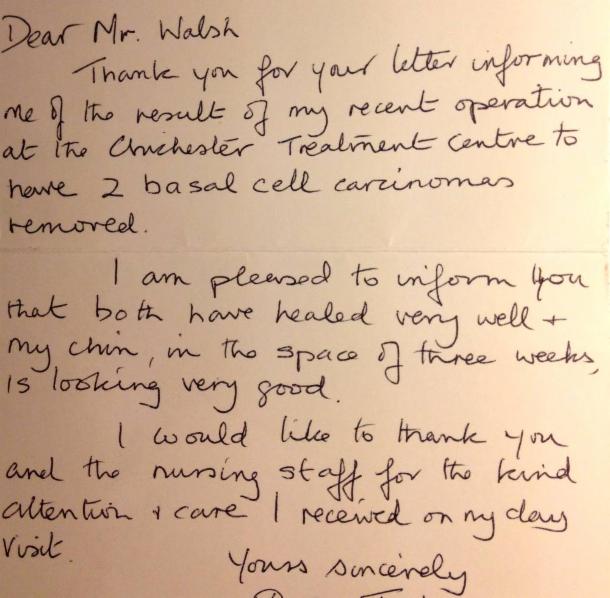 Dear Mr. Walsh
Thank you for your letter informing
me of the result of my recent operation
at the Chichester Treatment Centre to
have 2 basal cell carcinomas
removed.
I am pleased to inform you
that both have healed very well +
my chin, in the space of three weeks,
is looking very good.
I would like to thank you
and the nursing staff for the kind
attention + care I received on my day
visit.
Yours sincerely